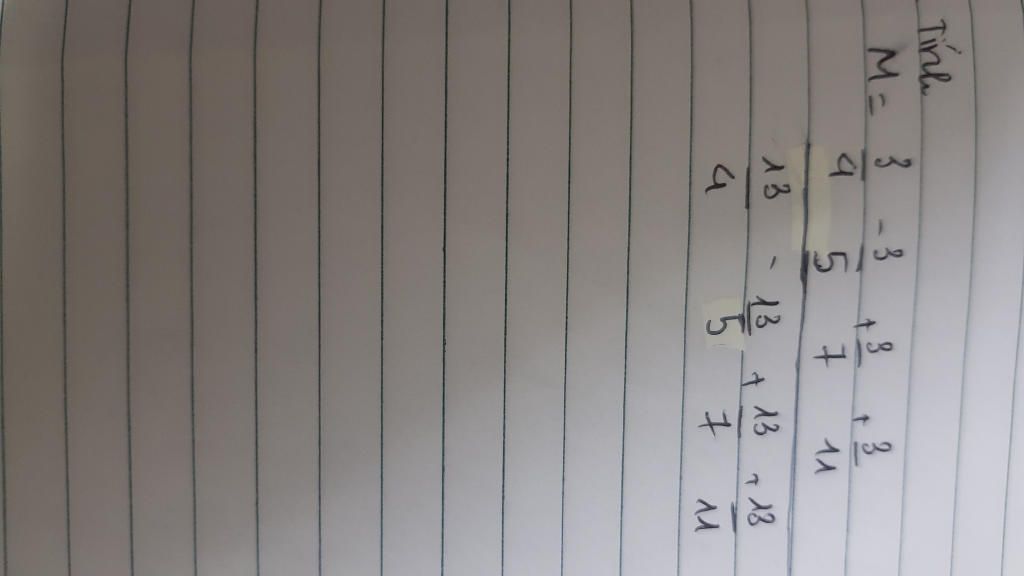 Tính
M = 3/4 - 3/5 + 3/7 + 3/11
13/4 - 13/5 + 13/7 + 13/11